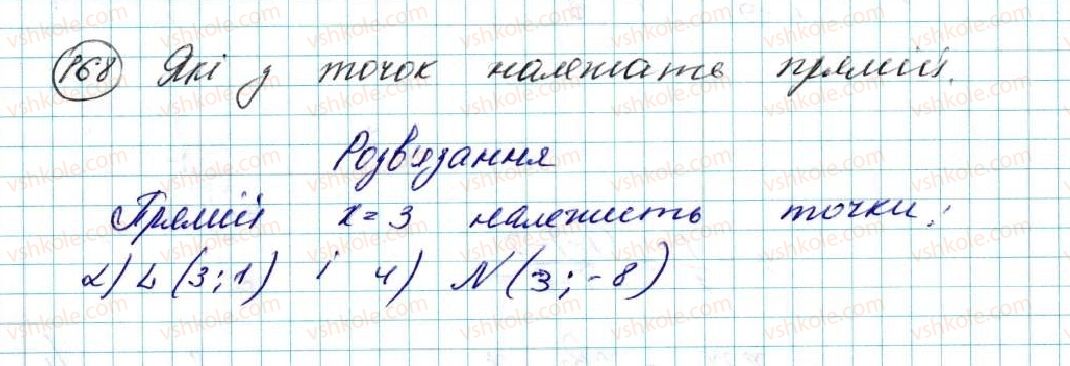 168 Які з точок належать прямій.
Розв'язання
Прямій x = 3 належить точки:
2) L (3; 1) і 4) N (3; -8)